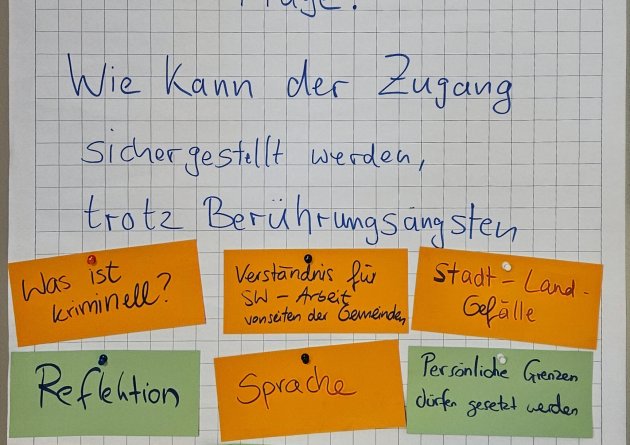 Frage?
Wie kann der Zugang
sichergestellt werden,
trotz Berührungsängsten
Was ist
kriminell?
Verständnis für
SW - Arbeit
vonseiten der Gemeinden
Stadt - Land -
Gefälle
Reflektion
Sprache
Persönliche Grenzen
dürfen gesetzt werden